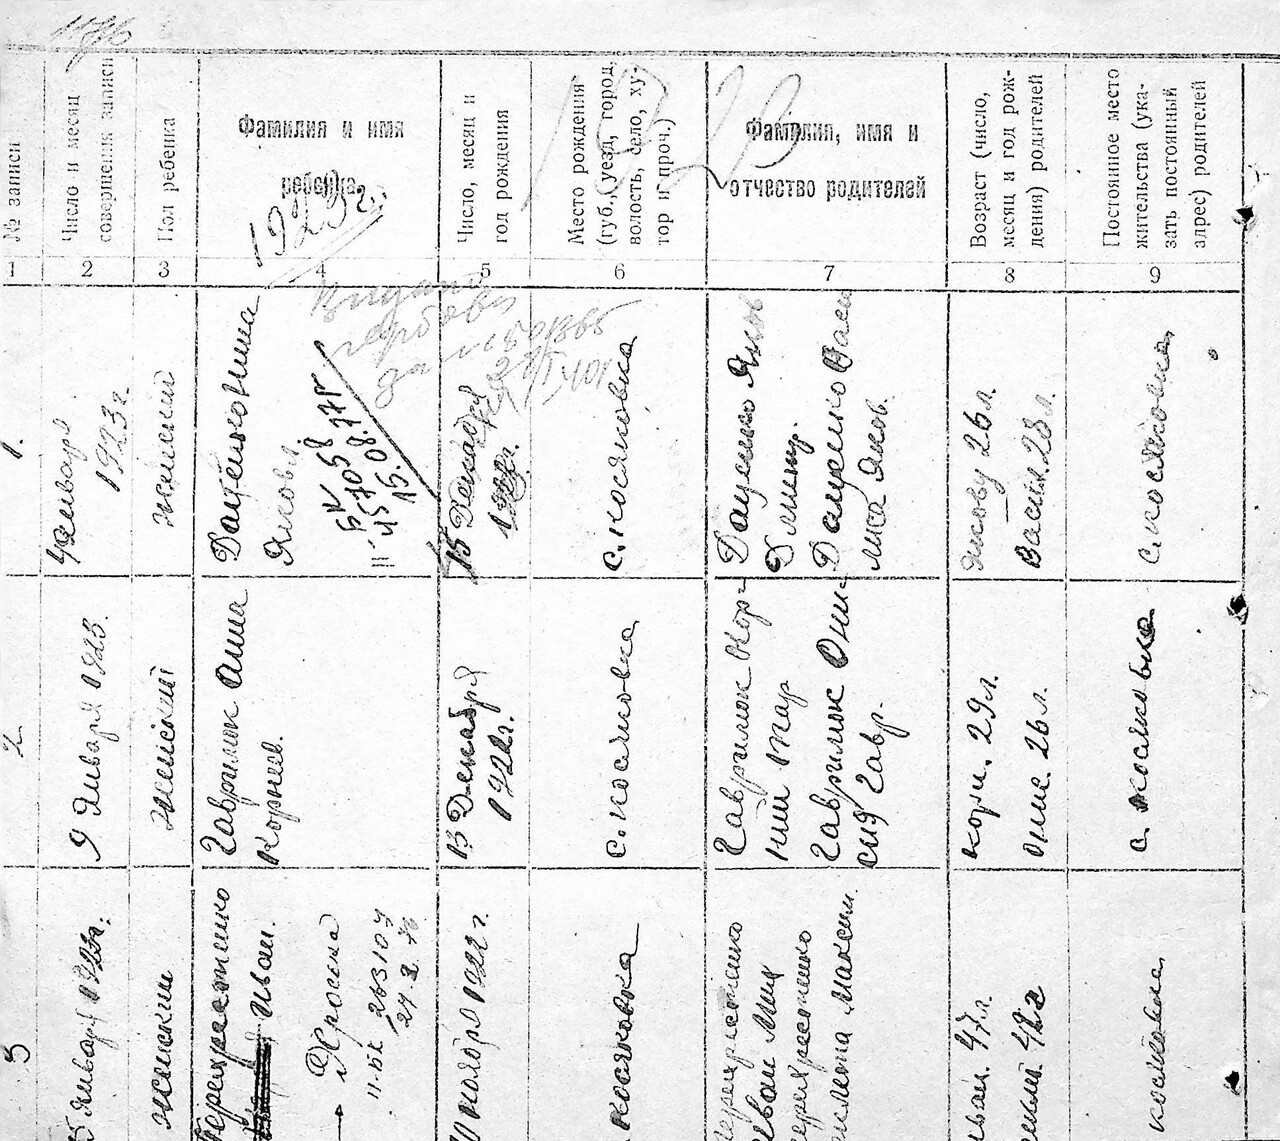 1923
№ записи
Число и месяц
совершения записи
Пол ребенка
Фамилия и имя
ребенка
1923 г.
Число, месяц и
год рождения
Место рождения
(губ., уезд, город,
волость, село, ху-
тор и проч.)
Фамилия, имя и
отчество родителей
Возраст (число,
месяц и год рож-
дения) родителей
Постоянное место
жительства (ука-
зать постоянный
адрес) родителей
1 2 3 4 5 6 7 8 9
1.
января
1923 г.
женский
Даценко Нина
Яковл.
457058
15.08.77г
15 Декабря
с. Косяковка
Даценко Яков
Дмитр.
Даценко Васи
лиса Яков.
Якову 26 л.
Васил. 28 л.
с. Косяковка
2
9 Января 1923.
женский
Гаврилюк Анна
Корнеев.
13 Декабря
1922 г.
с. Косяковка
Гаврилюк Кор-
ний
Гаврилюк Они-
сия Гавр.
Корн. 29 л.
Онис. 26 л.
с. Косяковка
3
Января 1923 г.
женский
Перехрестенко
Иван.
263107
ноября 1922 г.
Косяковка
Перехрестенко
Иван
Перехрестенко
Максим.
Иван. 47 л.
Косяковка